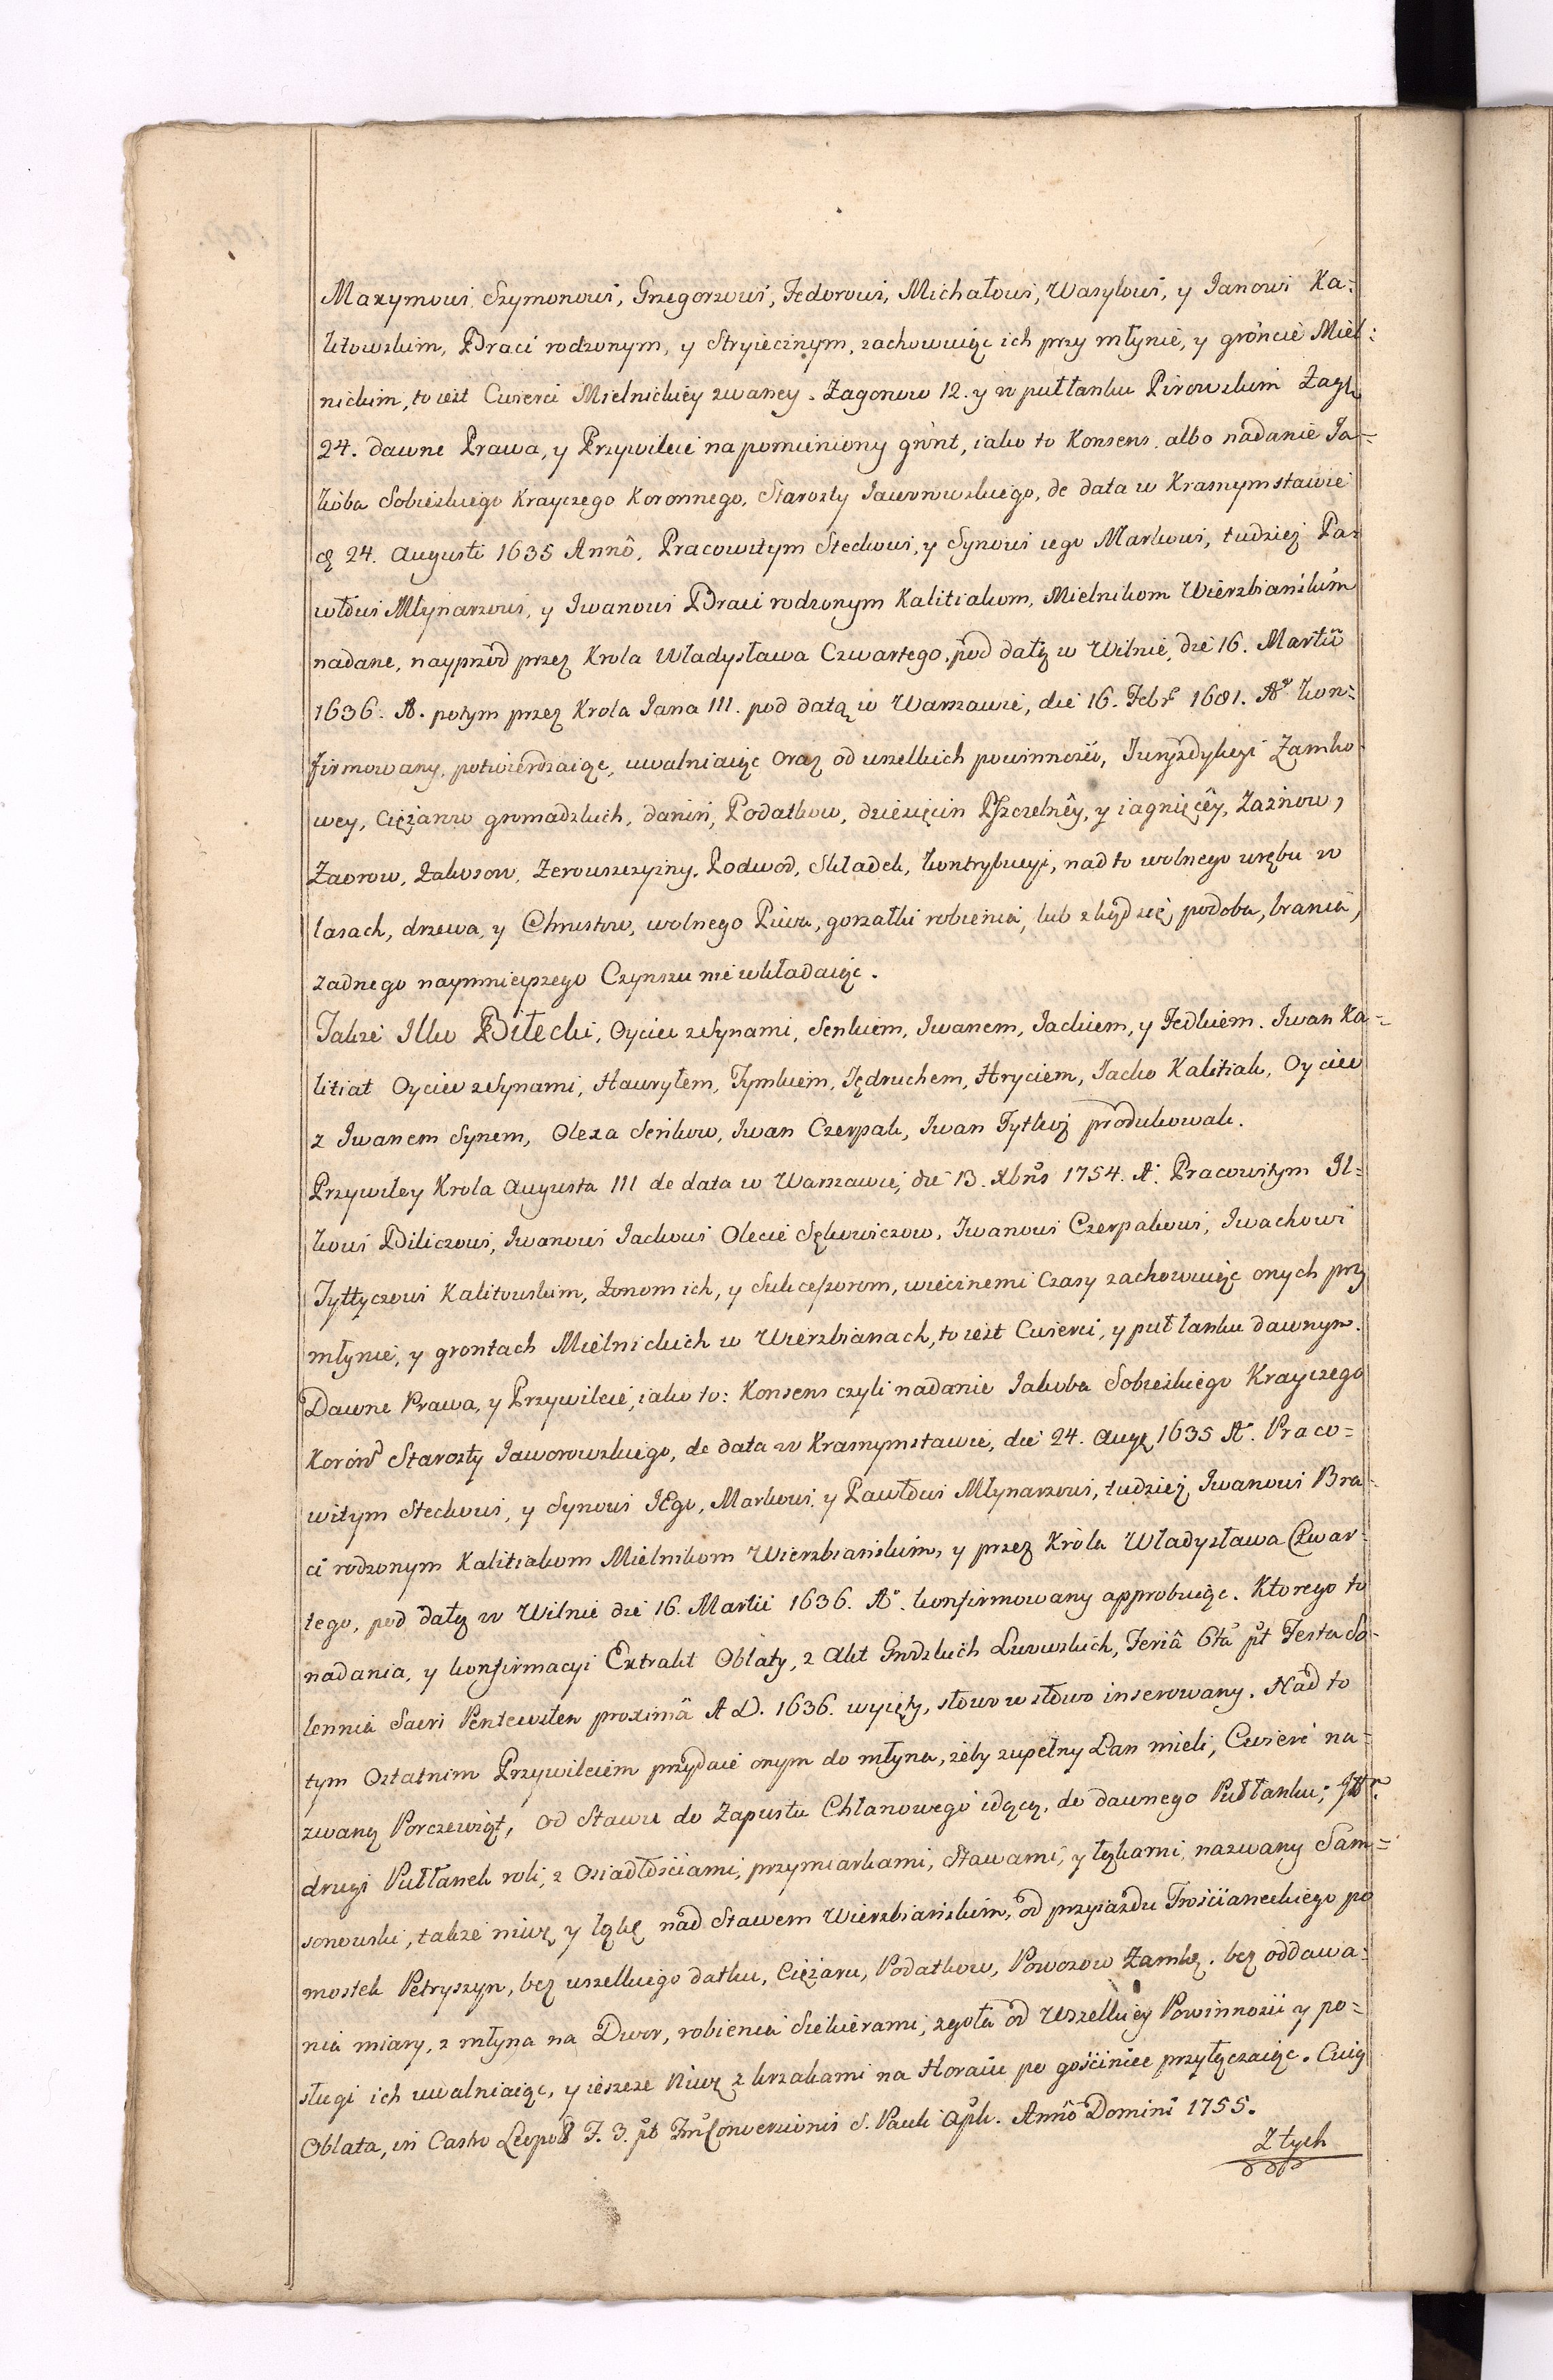 Maxymowi, Szymonowi, Grzegorzowi, Fedorowi, Michałowi, Wasylowi, y Janowi Ka=
litowskim, Braci rodzonym, y Stryiecznym, zachowuiąc ich przy młynie, y gróncie Miel=
nickim, to iest Cwierci Mielnickiey zwaney. Zagonow 12. y w puł łanku Pirowskim Zag:
24. dawne Prawa, y Przywileie na pomieniony grónt, iako to Konsens albo nadanie Ja=
kóba Sobieskiego Krayczego Koronnego, Starosty Jaworowskiego, de data w Krasnymstawie
24. Augusti 1635 Annô, Pracowitym Steckowi, y Synowi iego Markowi, tudziez Pa=
włowi Młynarzowi, y Iwanowi Braci rodzonym Kalitiakom, Mielnikom Wierzbiańskim
nadane, nayprzod przez Krola Władysława Czwartego, pod datą w Wilnie, die 16. Martii
1636. A. potym przez Krola Jana III. pod datą w Warszawie, die 16. Febr 1681. Aº kon=
firmowany, potwierdzaiąc, uwalniaiąc oraz od wszelkich powinności, Juryzdykcyi Zamko=
wey, Ciężarow gromadzkich, danin, Podatkow, dziesięcin Pszczelnêy, y iagnięcêy, Zażnow,
Zaorow, Zakosow, Zerowszczyzny, Podwod, Składek, kontrybucyi, nad to wolnego wrębu w
lasach, drzewa, y Chrustow, wolnego Piwa, gorzałki robienia, lub zkąd się podoba, brania,
zadnego naymnieyszego Czynszu nie wkładaiąc.
Takze Ilko Bilecki, Oyciec z Synami, Senkiem, Iwanem, Jackiem, y Fedkiem. Iwan Ka=
litiak Oyciec z Synami, Hawryłem, Tymkiem, Jędruchem, Hryciem, Jacko Kalitiak, Oyciec
z Iwanem Synem, Olexa Seńkow, Iwan Czerpak, Iwan Tytkoż produkowali.
Przywiley Krola Augusta III de data w Warszawie, die 13. Xbris 1754. A. Pracowitym Il=
kowi Biliczowi, Iwanowi Jackowi Olexie Sękowiczow, Iwanowi Czerpakowi, Iwachowi
Tyttyczowi Kalitowskim, Zonom ich, y Sukcessorom, wiecznemi Czasy zachowuiąc onych przy
młynie, y grontach Mielnickich w Wierzbianach, to iest Cwierci, y puł łanku dawnym.
Dawne Prawa, y Przywileie, iako to: Konsens czyli nadanie Jakoba Sobieskiego Krayczego
Koron Starosty Jaworowskiego, de data w Krasnymstawie, die 24. Aug 1635 A. Praco=
witym Steckowi, y Synowi JEgo, Markowi, y Pawłowi Młynarzowi, tudziez Iwanowi Bra=
ci rodzonym Kalitiakom Mielnikom Wierzbiańskim, y przez Króla Władysława Czwar=
tego, pod datą w Wilnie die 16. Martii 1636. Aº. konfirmowany approbuiąc. Ktorego to
nadania, y konfirmacyi Extrakt Oblaty, z Akt Grodzkich Lwowskich, Feriâ 6ta pt Festa So=
lennia Sacri Pentecosten proximâ A D. 1636. wyięty, słowo w słowo inserowany. Nad to
tym Ostatnim Przywileiem przydaie onym do młyna, żeby zupełny Łan mieli, Cwierć na=
zwaną Porczewiąt, od Stawu do Zapustu Chłanowego idącą, do dawnego Pułłanku; Itt
drugi Pułłanek roli, z Osiadłościami, przymiarkami, Stawami, y łąkami, nazwany Sam=
sonowski, takze niwę y łąkę nad Stawem Wierzbiańskim, od przyiazdu Trościaneckiego po
mostek Petryszyn, bez wszelkiego datku, Ciężaru, Podatkow, Powozow Zamko. bez oddawa=
nia miary, z młyna na Dwor, robienia Siekierami, zgoła od Wszelkiey Powinności y po=
sługi ich uwalniaiąc, y ieszcze Niwę z krzakami na Horaiu po gościniec przyłączaiąc. Cuig
Oblata, in Castro Leopol F. 3. pt Fm Conversionis S. Pauli Apli. Annô Domini 1755.
Z tych